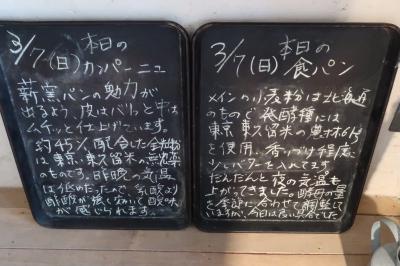 3/7(日)本日の
カンパーニュ
薪窯パンの魅力が
出るよう、皮はバリッと中は
ムチッと仕上げています。
約45%配合した全粒粉
は東京、東久留米の無農薬
のものです。昨晩の気温
は低めだったので、乳酸より
酢酸が強く効いて酸味
が感じられます。
3/7(日)本日の
食パン
メインの小麦粉は北海道
のもので発酵種には
東京 東久留米の
を使用。香りづけ程度に
少しバターも入れてます。
だんだんと夜の気温も
上がってきました。酵母の量
を季節に合わせて調整して
いますが、今日は良い